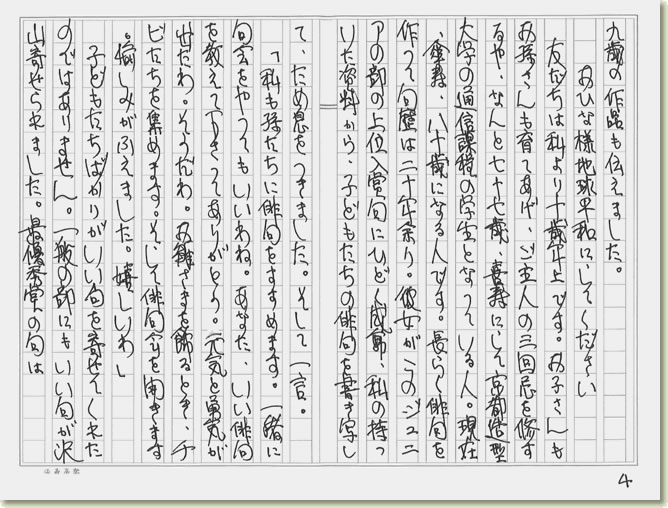 九歳の作品も伝えました。
おひな様地球平和にしてください
友だちは私より十歳年上です。お子さんも
お孫さんも育てあげ、ご主人の三回忌を修す
るや、なんと七十七歳、喜寿にして京都造型
大学の通信課程の学生となっている人。現在
傘寿、八十歳になる人です。長らく俳句を
作って句歴は二十年余り。彼女がこのジュニ
アの部の上位入賞句にひどく感動、私の持っ
いた資料から、子どもたちの俳句を書き写し
て、ため息をつきました。そして一言。
「私も孫たちに俳句をすすめます。一緒に
句会をやってもいいわね。あなた、いい俳句
を教えて下さってありがとう。元気と勇気が
出たわ。そうだわ。お雛さまを飾るとき、チ
ビたちを集めます。そして俳句会を開きます
。愉しみがふえました。嬉しいわ」
子どもたちばかりがいい句を寄せてくれた
のではありません。一般の部にもいい句が沢
山寄せられました。最優秀賞の句は
4